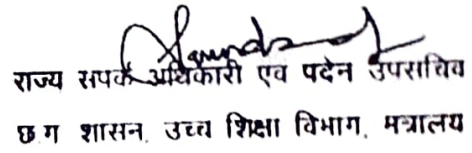 राज्य सपर्क अधिकारी एव पदेन उपसचिव
छ ग शासन, उच्च शिक्षा विभाग, मत्रालय